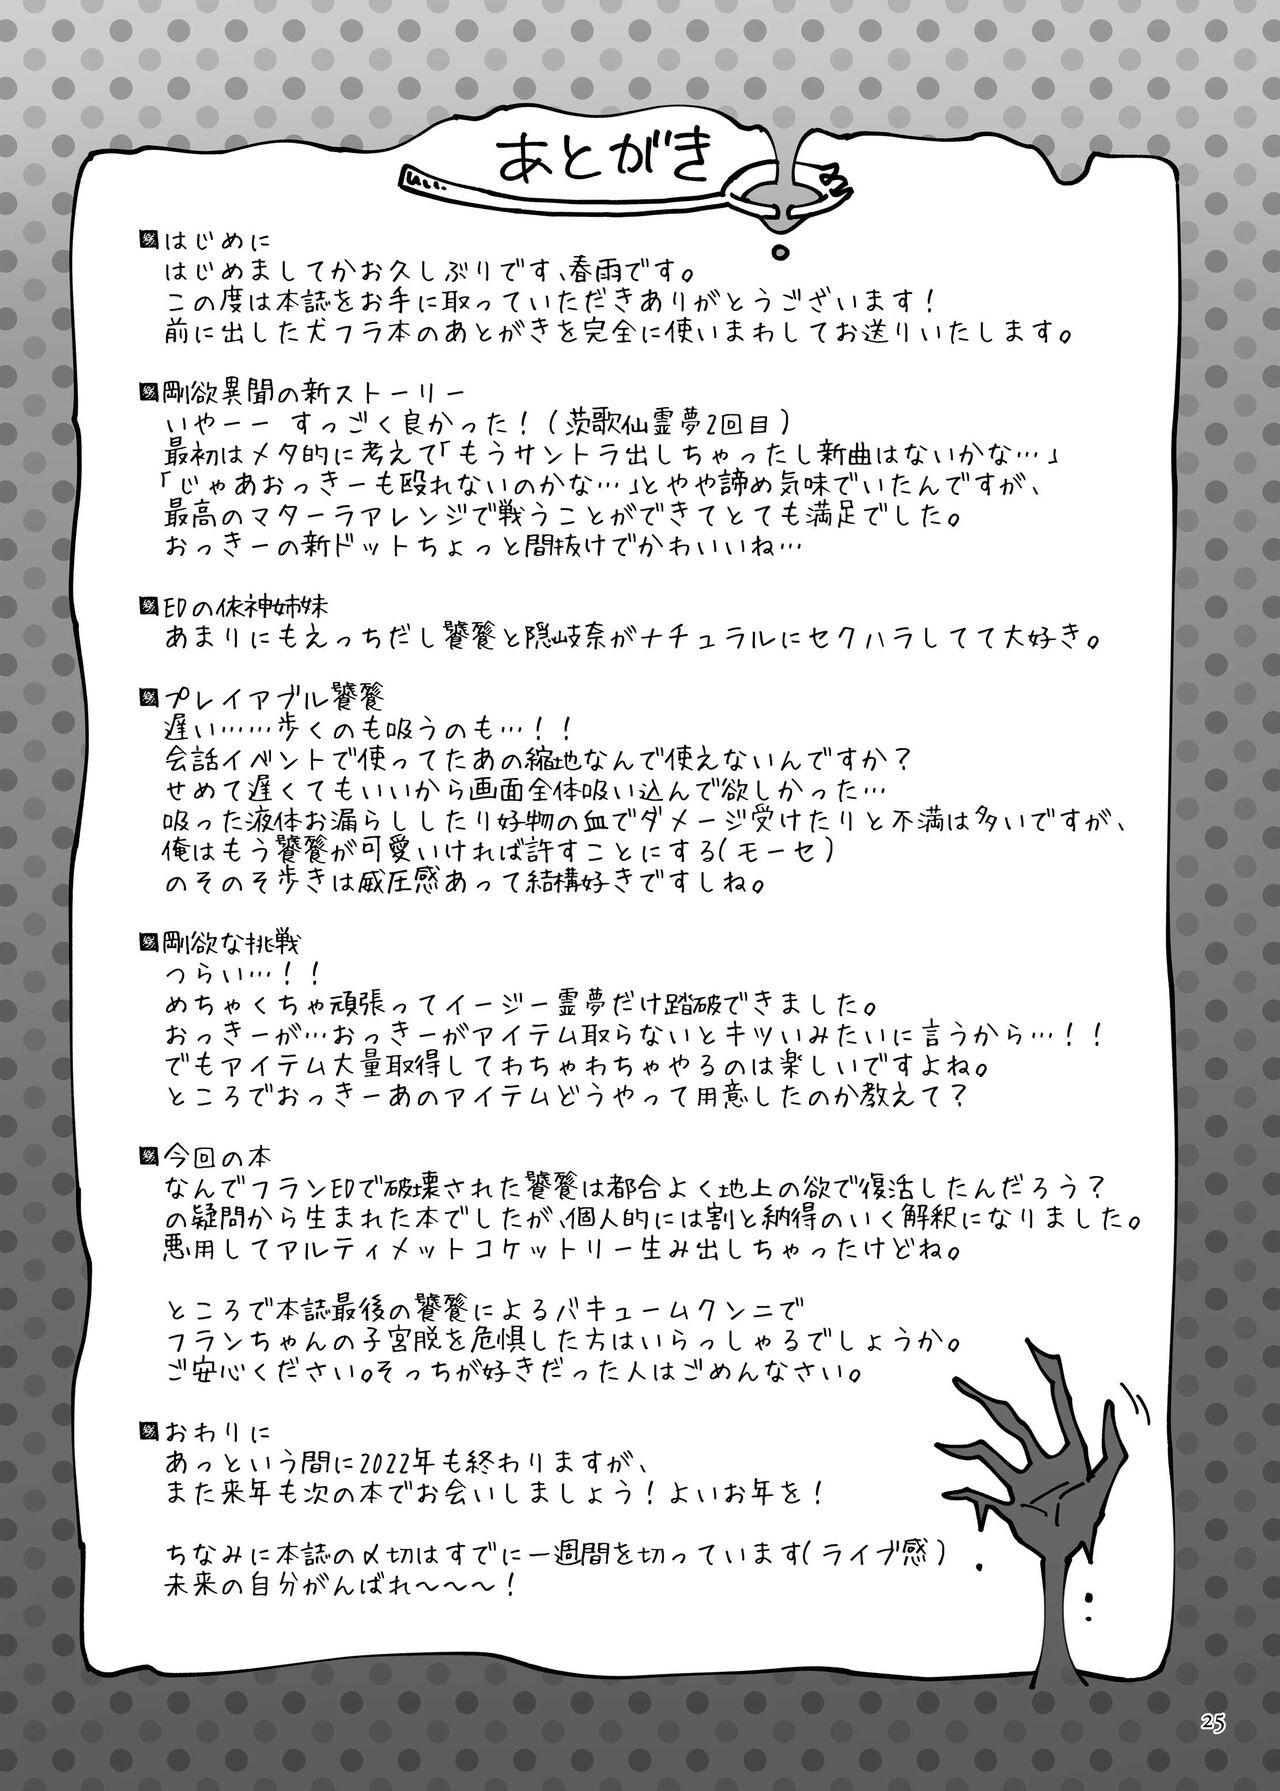 あとがき
はじめに
はじめましてかお久しぶりです、春雨です。
この度は本誌をお手に取っていただきありがとうございます！
前に出した犬フラ本のあとがきを完全に使いまわしてお送りいたします。
剛欲異聞の新ストーリー
いやーー すっごく良かった！（茨歌仙霊夢2回目）
最初はメタ的に考えて「もうサントラ出しちゃったし新曲はないかな…」
「じゃあおっきーも殴れないのかな…」とやや諦め気味でいたんですが、
最高のマターラアレンジで戦うことができてとても満足でした。
おっきーの新ドットちょっと間抜けでかわいいね…
EDの依神姉妹
あまりにもえっちだし饕餮と隠岐奈がナチュラルにセクハラしてて大好き。
プレイアブル饕餮
遅い……歩くのも吸うのも…！！
会話イベントで使ってたあの縮地なんで使えないんですか？
せめて遅くてもいいから画面全体吸い込んで欲しかった…
吸った液体お漏らししたり好物の血でダメージ受けたりと不満は多いですが、
俺はもう饕餮が可愛いければ許すことにする（モーセ）
のそのそ歩きは威圧感あって結構好きですしね。
剛欲な挑戦
つらい…！！
めちゃくちゃ頑張ってイージー霊夢だけ踏破できました。
おっきーが…おっきーがアイテム取らないとキツいみたいに言うから…！！
でもアイテム大量取得してわちゃわちゃやるのは楽しいですよね。
ところでおっきーあのアイテムどうやって用意したのか教えて？
今回の本
なんでフランEDで破壊された饕餮は都合よく地上の欲で復活したんだろう？
の疑問から生まれた本でしたが、個人的には割と納得のいく解釈になりました。
悪用してアルティメットコケットリー生み出しちゃったけどね。
ところで本誌最後の饕餮によるバキュームクンニで
フランちゃんの子宮脱を危惧した方はいらっしゃるでしょうか。
ご安心ください。そっちが好きだった人はごめんなさい。
おわりに
あっという間に2022年も終わりますが、
また来年も次の本でお会いしましょう！よいお年を！
ちなみに本誌の〆切はすでに一週間を切っています（ライブ感）
未来の自分がんばれ～～～！
25